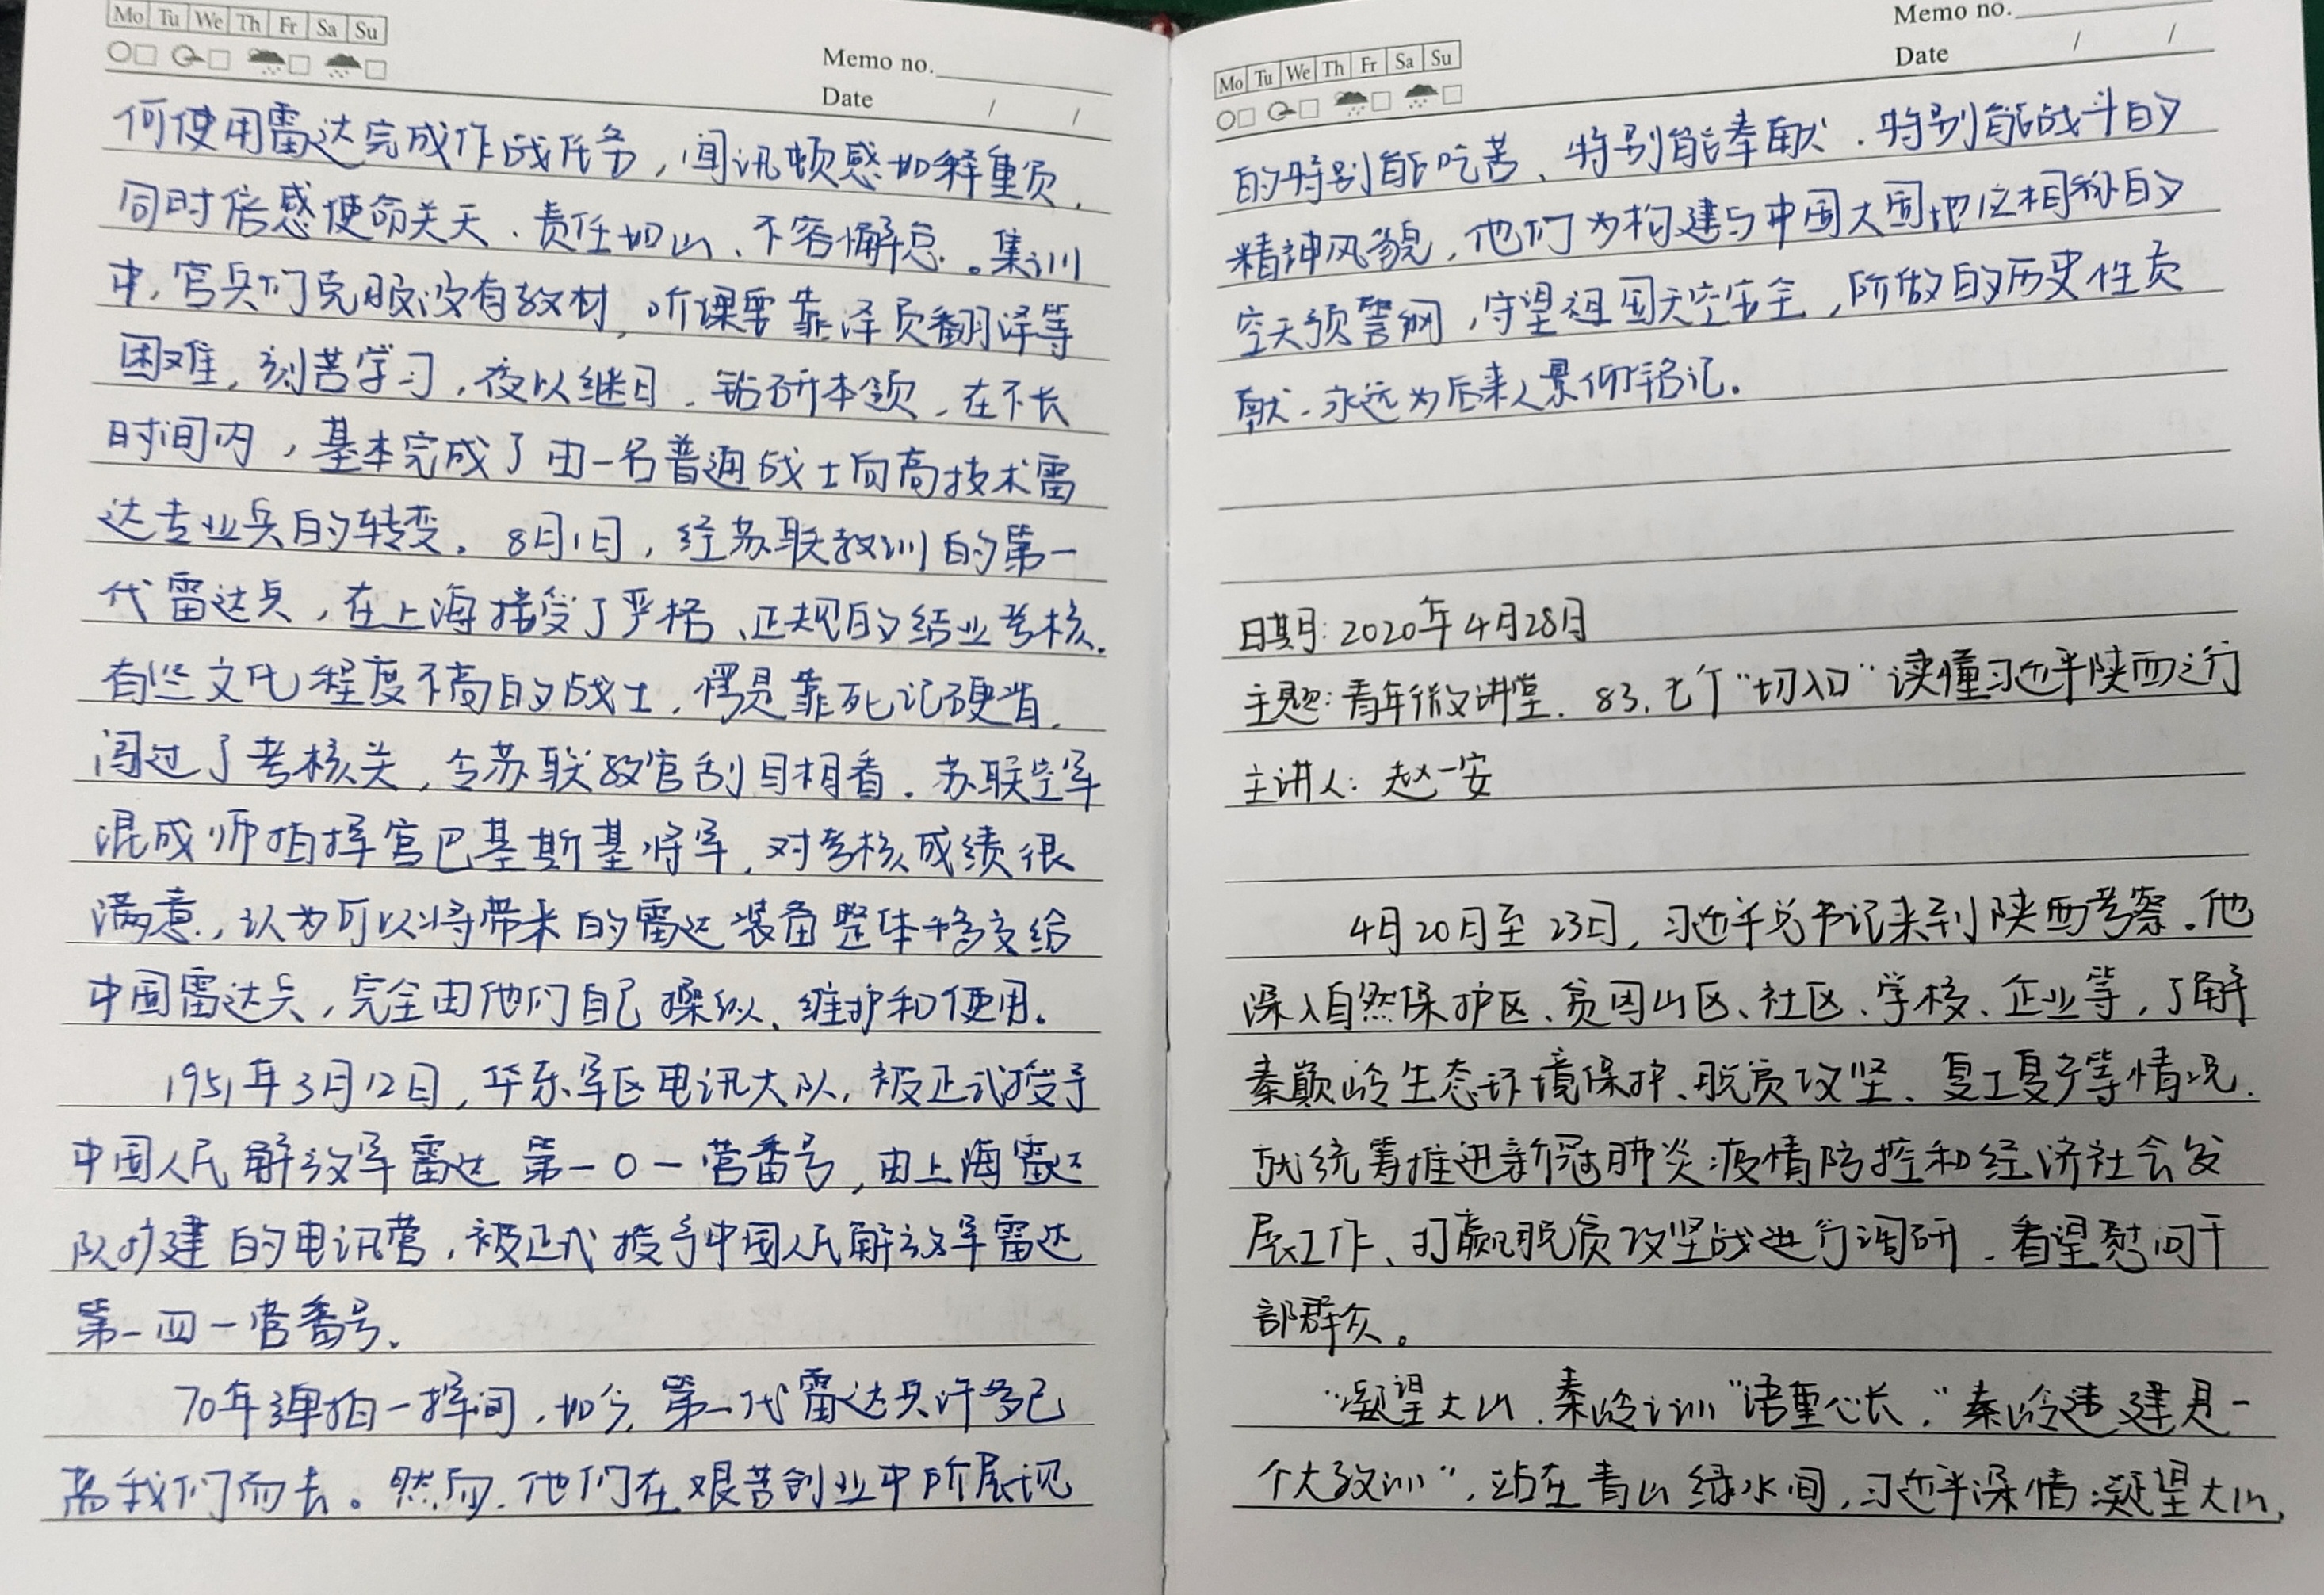 Mo Tu We Th Fr Sa Su
Memo no.
Date / /
何使用雷达完成作战任务，闻讯顿感如释重负，
同时倍感使命关天、责任如山、不容懈怠。集训
中，官兵们克服没有教材，听课要靠译员翻译等
困难，刻苦学习，夜以继日，钻研本领，在不长
时间内，基本完成了由一名普通战士向高技术雷
达专业兵的转变。8月1日，经苏联教训的第一
代雷达兵，在上海接受了严格、正规的结业考核。
有些文化程度不高的战士，愣是靠死记硬背，
闯过了考核关，令苏联教官刮目相看。苏联空军
混成师指挥官巴基斯基将军，对考核成绩很
满意，认为可以将带来的雷达装备整体移交给
中国雷达兵，完全由他们自己操纵、维护和使用。
1951年3月12日，华东军区电讯大队，被正式授予
中国人民解放军雷达第一〇一营番号，由上海雷达
队扩建的电讯营，被正式授予中国人民解放军雷达
第一四一营番号。
70年弹指一挥间，如今，第一代雷达兵许多已
离我们而去。然而，他们在艰苦创业中所展现
Mo Tu We Th Fr Sa Su
Memo no.
Date / /
的特别能吃苦、特别能奉献、特别能战斗的
精神风貌，他们为构建与中国大国地位相称的
空天预警网，守望祖国天空安全，所做的历史性贡
献，永远为后来人景仰铭记。
日期：2020年4月28日
主题：青年微讲堂．83，七个“切入口”读懂习近平陕西之行
主讲人：赵一安
4月20日至23日，习近平总书记来到陕西考察。他
深入自然保护区、贫困山区、社区、学校、企业等，了解
秦巅岭生态环境保护、脱贫攻坚、复工复产等情况．
就统筹推进新冠肺炎疫情防控和经济社会发
展工作、打赢脱贫攻坚战进行调研，看望慰问干
部群众。
“凝望大山，秦岭之训”语重心长，“秦岭违建是一
个大教训”，站在青山绿水间，习近平深情凝望大山，